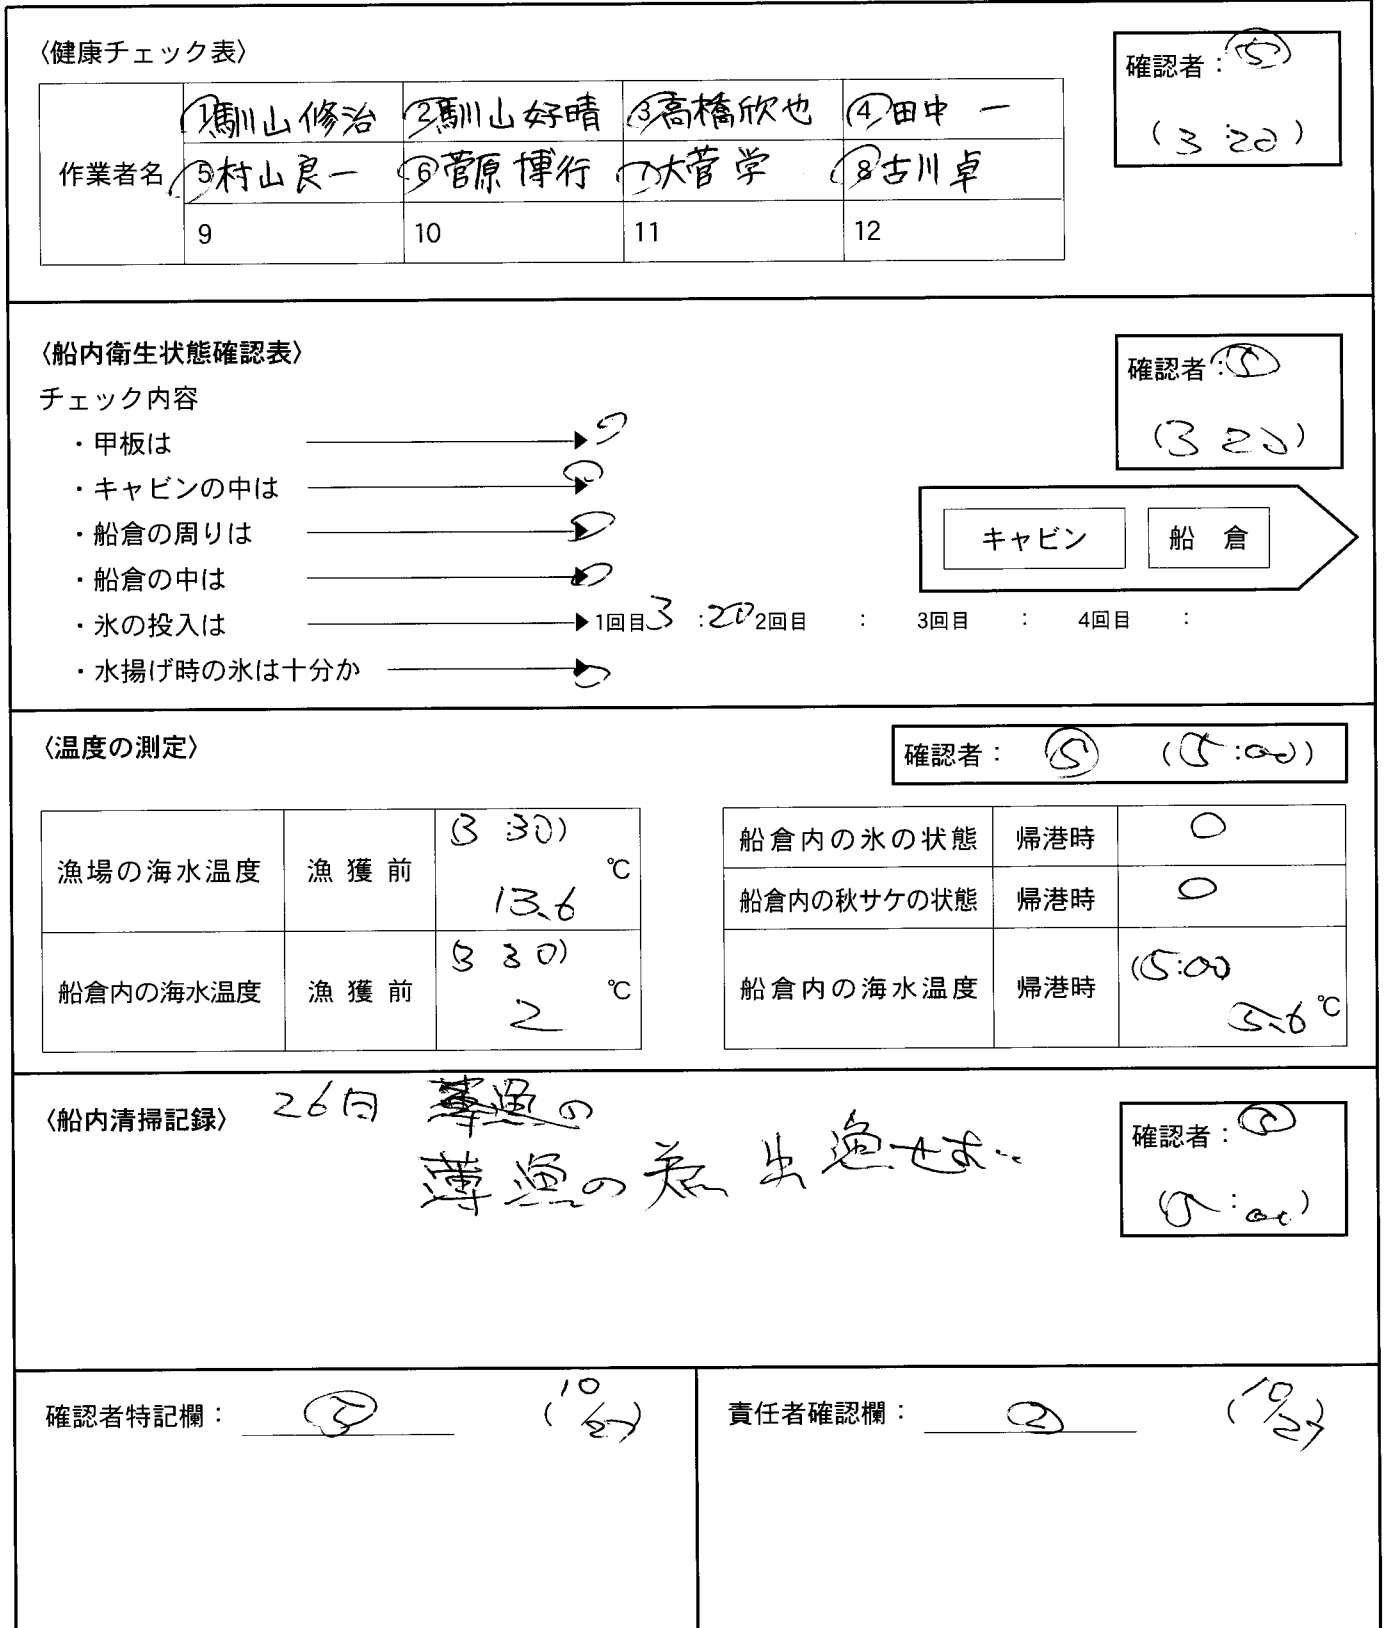 〈健康チェック表〉
確認者：⑤
(3:20)
作業者名
①馴山修治 ②馴山好晴 ③高橋欣也 ④田中一
⑤村山良一 ⑥菅原博行 ⑦大菅学 ⑧古川卓
9 10 11 12
〈船内衛生状態確認表〉
確認者：⑤
(3 20)
チェック内容
・甲板は ○
・キャビンの中は ○
・船倉の周りは ○
・船倉の中は ○
・氷の投入は 1回目3:20 2回目 : 3回目 : 4回目 :
・水揚げ時の氷は十分か ○
キャビン 船倉
〈温度の測定〉
確認者：⑤ (5:00)
漁場の海水温度 漁獲前 (3 30) 13.6 ℃
船倉内の海水温度 漁獲前 (3 30) 2 ℃
船倉内の氷の状態 帰港時 ○
船倉内の秋サケの状態 帰港時 ○
船倉内の海水温度 帰港時 (5:00 3.6℃
〈船内清掃記録〉 26日
薄漁の為出漁せず..
確認者：⑤
(5:00)
確認者特記欄： ⑤ (10/27)
責任者確認欄： (10/27)